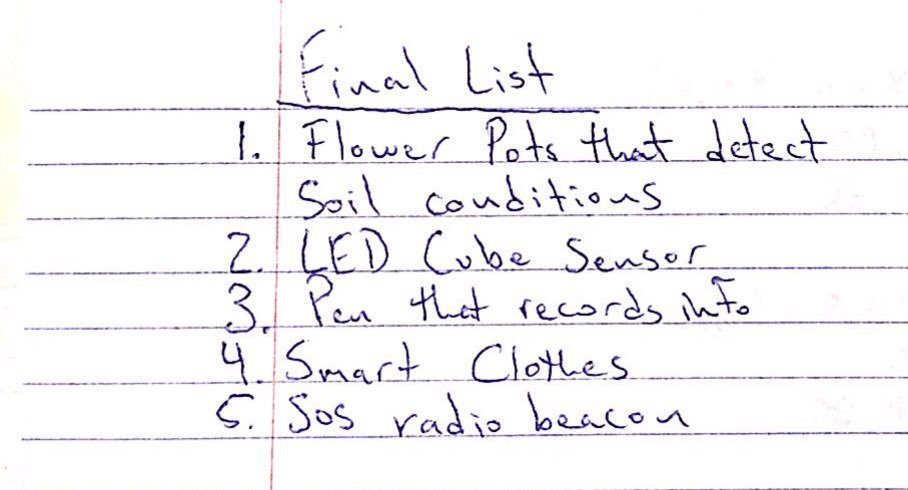 Final List
1. Flower Pots that detect
Soil conditions
2. LED Cube Sensor
3. Pen that records info
4. Smart Clothes
5. Sos radio beacon